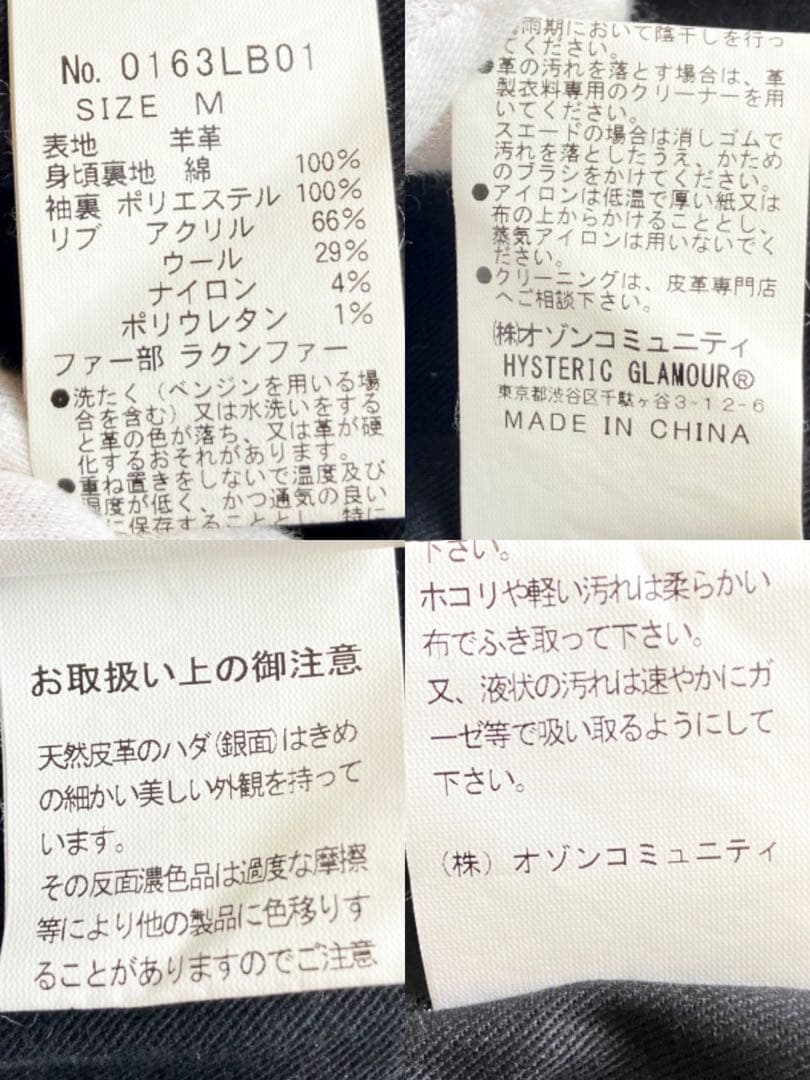 No. 0163LB01
SIZE M
表地 羊革
身頃裏地 綿 100%
袖裏 ポリエステル 100%
リブ アクリル 66%
ウール 29%
ナイロン 4%
ポリウレタン 1%
ファー部 ラクンファー
●洗たく(ベンジンを用いる場
合を含む)又は水洗いをする
と革の色が落ち、又は革が硬
化するおそれがあります。
●重ね置きをしないで温度及び
湿度が低く、かつ通気の良い
に保存することとし、特に
雨期において陰干しを行っ
てください。
●革の汚れを落とす場合は、革
製衣料専用のクリーナーを用
いてください。
スエードの場合は消しゴムで
汚れを落としたうえ、かため
のブラシをかけてください。
●アイロンは低温で厚い紙又は
布の上からかけることとし、
蒸気アイロンは用いないでく
ださい。
●クリーニングは、皮革専門店
へご相談下さい。
(株)オゾンコミュニティ
HYSTERIC GLAMOUR®
東京都渋谷区千駄ヶ谷3-12-6
MADE IN CHINA
お取扱い上の御注意
天然皮革のハダ(銀面)はきめ
の細かい美しい外観を持って
います。
その反面濃色品は過度な摩擦
等により他の製品に色移りす
ることがありますのでご注意
下さい。
ホコリや軽い汚れは柔らかい
布でふき取って下さい。
又、液状の汚れは速やかにガ
ーゼ等で吸い取るようにして
下さい。
(株)オゾンコミュニティ